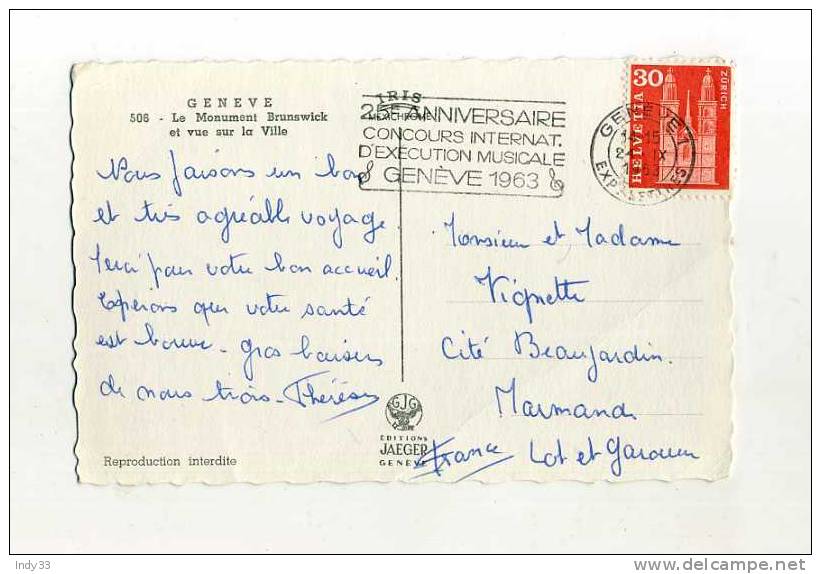 GENEVE
506 - Le Monument Brunswick
et vue sur la Ville
Nous faisons un bon
et très agréable voyage
Merci pour votre bon accueil.
Espérons que votre santé
est bonne - gros baisers
de nous trois - Thérèse
Reproduction interdite
IRIS
MEXICHROME
25E ANNIVERSAIRE
CONCOURS INTERNAT.
D'EXECUTION MUSICALE
GENÈVE 1963
GJG
EDITIONS
JAEGER
GENEVE
30
HELVETIA
ZÜRICH
GENEVE 1
IX
EXP. LETTRES
Monsieur et Madame
Vignette
Cité Beaujardin.
Marmande
Lot et Garonne
France
Indy33
delcampe.net